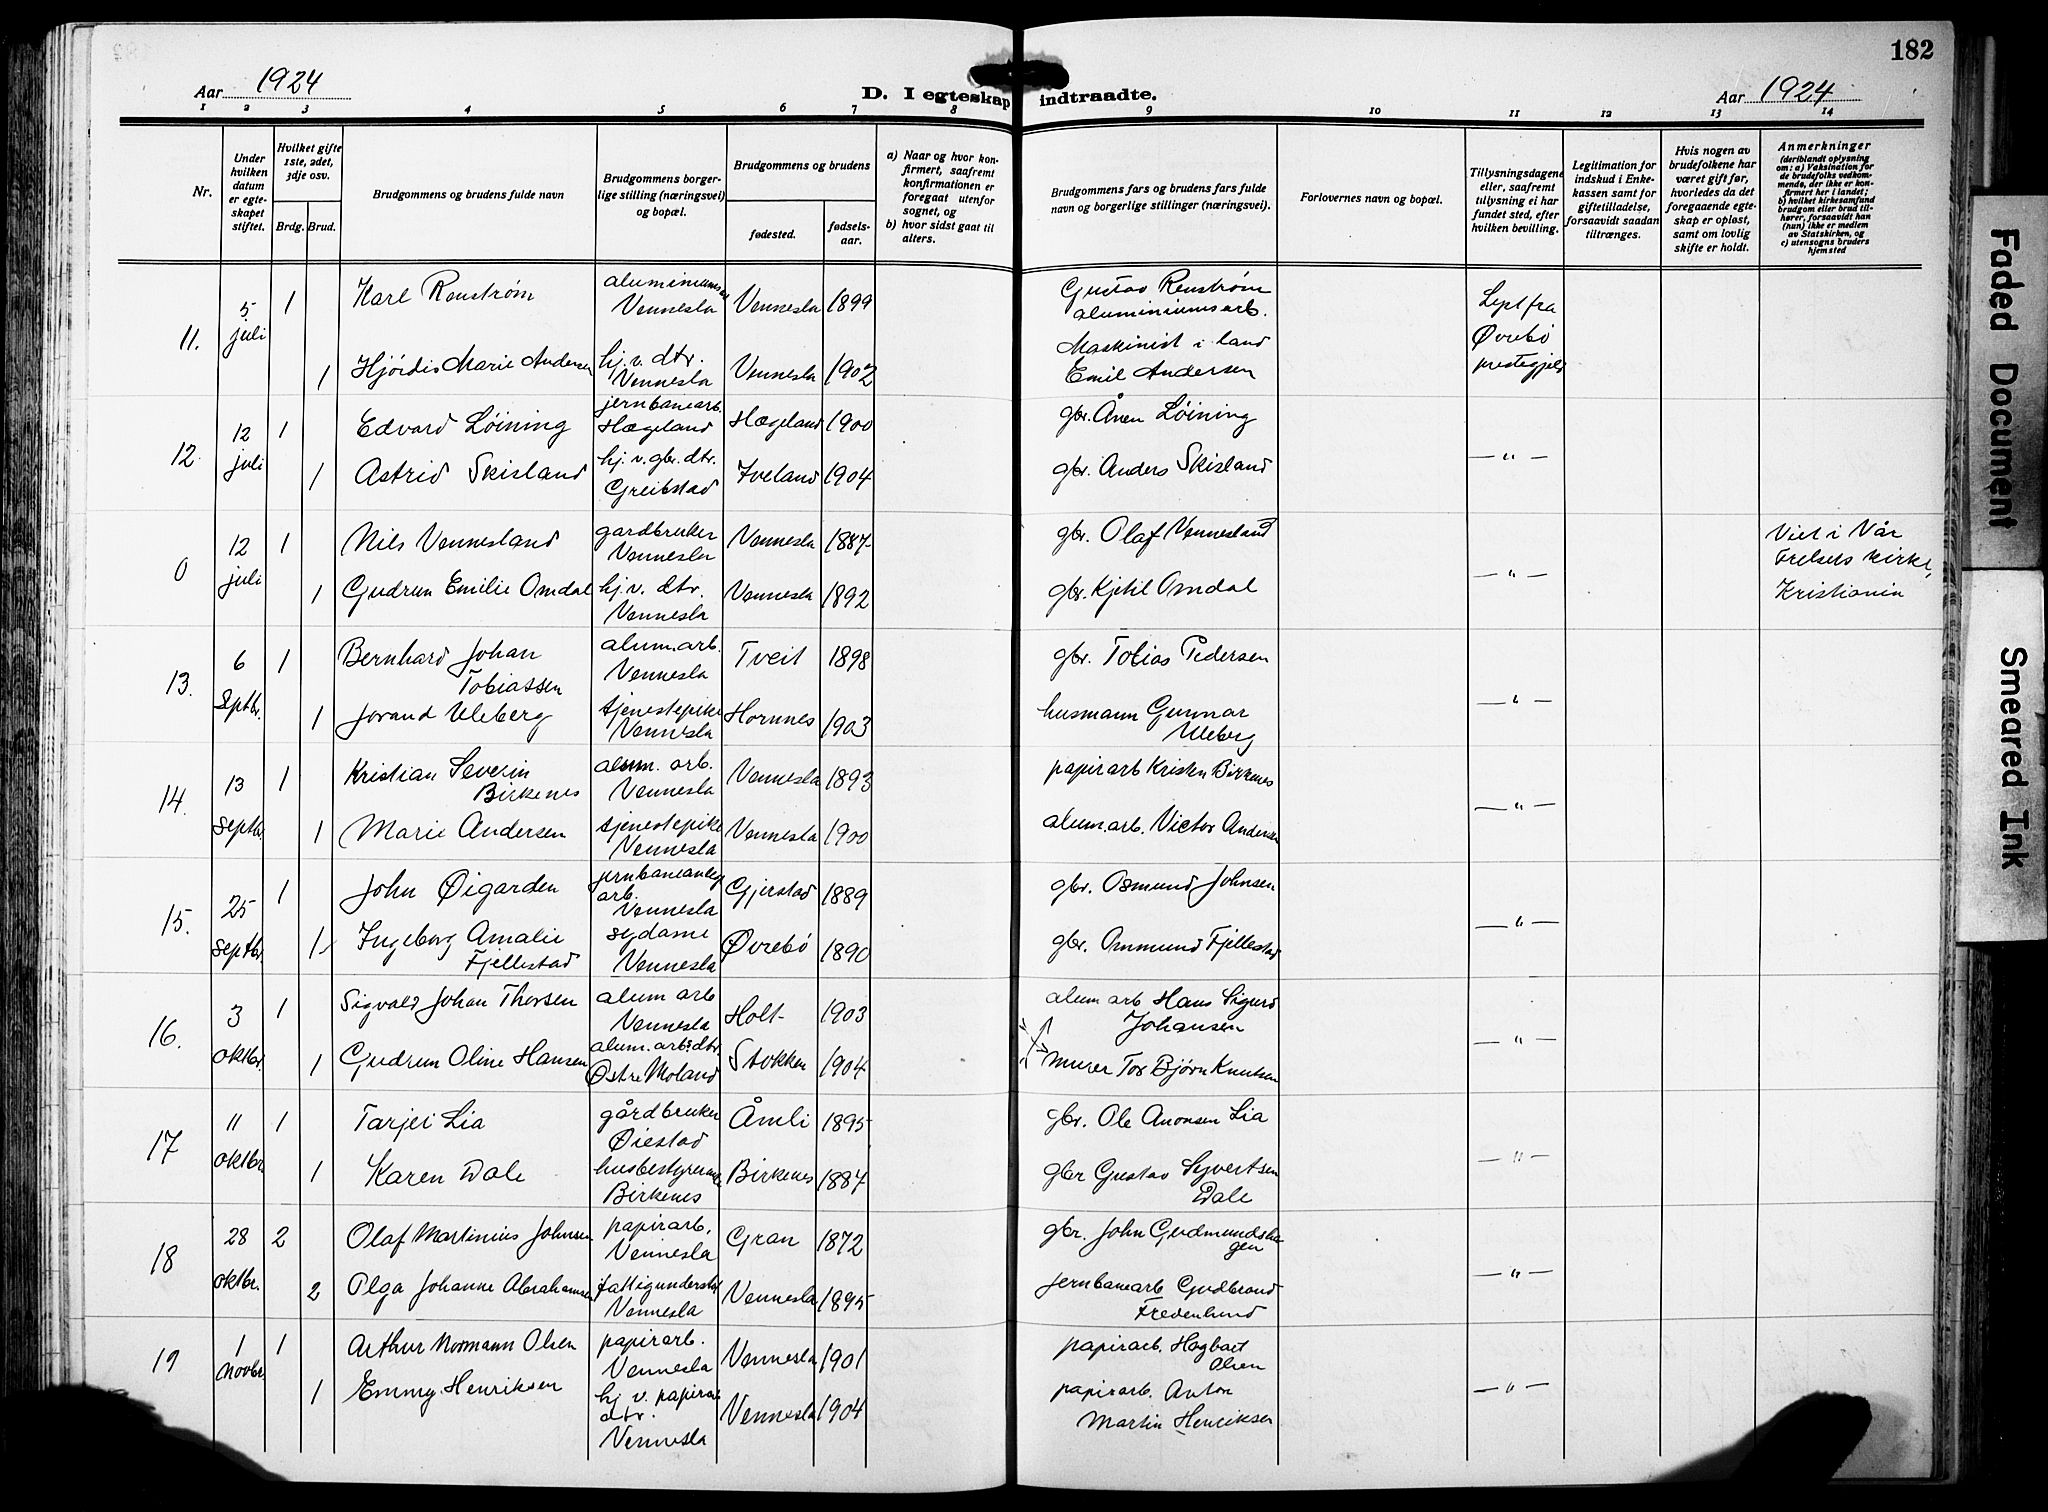 182
Aar 1924
D. I egteskap indtraadte.
Aar 1924
1 2 3 4 5 6 7 8 9 10 11 12 13 14
Nr.
Under hvilken datum er egteskapet stiftet.
Hvilket gifte 1ste, 2det, 3dje osv.
Brdg. Brud.
Brudgommens og brudens fulde navn
Brudgommens borgerlige stilling (næringsvei) og bopæl.
Brudgommens og brudens
fødested.
fødselsaar.
a) Naar og hvor konfirmert, saafremt konfirmationen er foregaat utenfor sognet, og
b) hvor sidst gaat til alters.
Brudgommens fars og brudens fars fulde navn og borgerlige stillinger (næringsvei).
Forlovernes navn og bopæl.
Tillysningsdagene eller, saafremt tillysning ei har fundet sted, efter hvilken bevilling.
Legitimation for indskud i Enkekassen samt for giftetilladelse, forsaavidt saadan tiltrænges.
Hvis nogen av brudefolkene har været gift før, hvorledes da det foregaaende egteskap er opløst, samt om lovlig skifte er holdt.
Anmerkninger
(deriblandt oplysning om: a) Vaksination for de brudefolks vedkommende, der ikke er konfirmert her i landet; b) hvilket kirkesamfund brudgom eller brud tilhører, forsaavidt han (hun) ikke er medlem av Statskirken, og c) utensogns bruders hjemsted
11. 5 juli 1 Karl Renstrøm aluminiumsarb Vennesla Vennesla 1899 Gustav Renstrøm aluminiumsarb. Lyst fra Øvrebø prestegjeld
1 Hjördis Marie Andersen hj. v. dtr. Vennesla Vennesla 1902 Maskinist i land Emil Andersen
12 12 juli 1 Edvard Löining jernbanearb. Hægeland Hægeland 1900 gbr. Ånen Löining
1 Astrid Skisland hj. v. gbr. dtr. Greibstad Iveland 1904 gbr. Anders Skisland — " —
0 12 juli 1 Nils Vennesland gardbruker Vennesla Vennesla 1887 gbr. Olaf Vennesland Viet i Vår Frelsers kirke, Kristiania
1 Gudrun Emilie Omdal hj. v. dtr. Vennesla Vennesla 1892 gbr. Kjetil Omdal — " —
13. 6 Septbr. 1 Bernhard Johan Tobiassen alum.arb. Vennesla Tveit 1898 gbr. Tobias Pedersen
1 Jorand Uleberg tjenestepike Vennesla Hornnes 1903 husmann Gunnar Uleberg — " —
14. 13 septbr. 1 Kristian Severin Birkenes alum. arb. Vennesla Vennesla 1893 papirarb Kristen Birkenes
1 Marie Andersen tjenestepike Vennesla Vennesla 1900 alum.arb. Victor Andersen — " —
15. 25 septbr. 1 John Øigarden jernbaneanlegg arb. Vennesla Gjerstad 1889 gbr. Osmund Johnsen
1 Ingeborg Amalie Fjellestad sydame Vennesla Øvrebø 1890 gbr. Ommund Fjellestad — " —
16. 3 oktbr. 1 Sigvald Johan Thorsen alum arb Vennesla Holt 1903 alum arb Hans Sigurd Johansen
1 Gudrun Oline Hansen alum. arbs dtr. Østre Moland Stokken 1904 murer Tor Bjørn Knutsen — " —
17 11 oktbr 1 Tarjei Lia gårdbruker Øiestad Åmli 1895 gbr. Ole Aronsen Lia
1 Karen Dale husbestyrerinne Birkenes Birkenes 1884 gbr Gustav Syvertsen Dale — " —
18 28 oktbr. 2 Olaf Martinius Johnsen papirarb. Vennesla Gran 1872 gbr. John Gudmundshagen
2 Olga Johanne Abrahamsen fattigunderst. Vennesla Vennesla 1895 jernbanearb Gudbrand Fredenlund — " —
19 1 Novbr. 1 Arthur Normann Olsen papirarb. Vennesla Vennesla 1901 papirarb. Hagbart Olsen
1 Emmy Henriksen hj. v. papirarb dtr. Vennesla Vennesla 1904 papirarb. Anton Martin Henriksen — " —
Faded Document
Smeared Ink